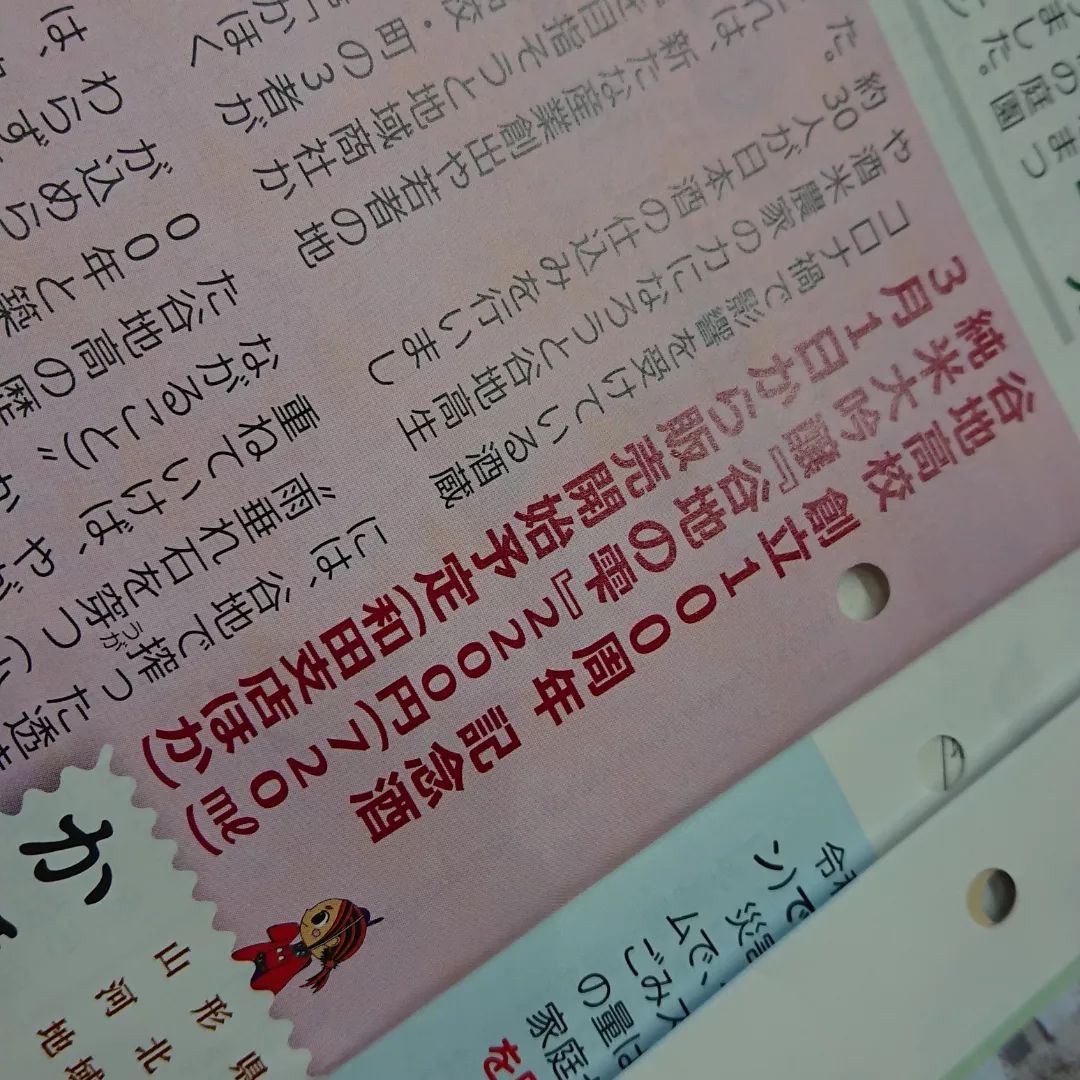 谷地高校 創立100周年 記念酒
純米大吟醸『谷地の雫』2200円(720㎖)
3月1日から販売開始予定(和田支店ほか)
コロナ禍で影響を受けている酒蔵
や酒米農家の力になろうと谷地高生
約30人が日本酒の仕込みを行いまし
た。
れは、新たな産業創出や若者の地
目指そうと地域商社か
校・町の3者が
かほく
には、谷地で搾った透
“雨垂れ石を穿つ(い
うが
重ねていけば、やが
ながること)”か
た谷地高の歴
00年と築
が込めら
わらず
は、
か
山形県
河北
地域
ました。
の庭まつ
園
ン)で
ムで、ス
ごみ
の量は
家庭
を